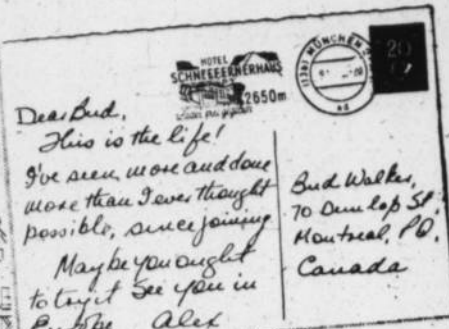 HOTEL
SCHNEEFERNERHAUS
2650m
MÜNCHEN
20
Dear Bud,
This is the life!
I've seen more and done
more than I ever thought
possible, since joining
Maybe you ought
to try it See you in
Europe Alex
Bud Walker,
70 Dunlop St.
Montreal, P.Q.
Canada